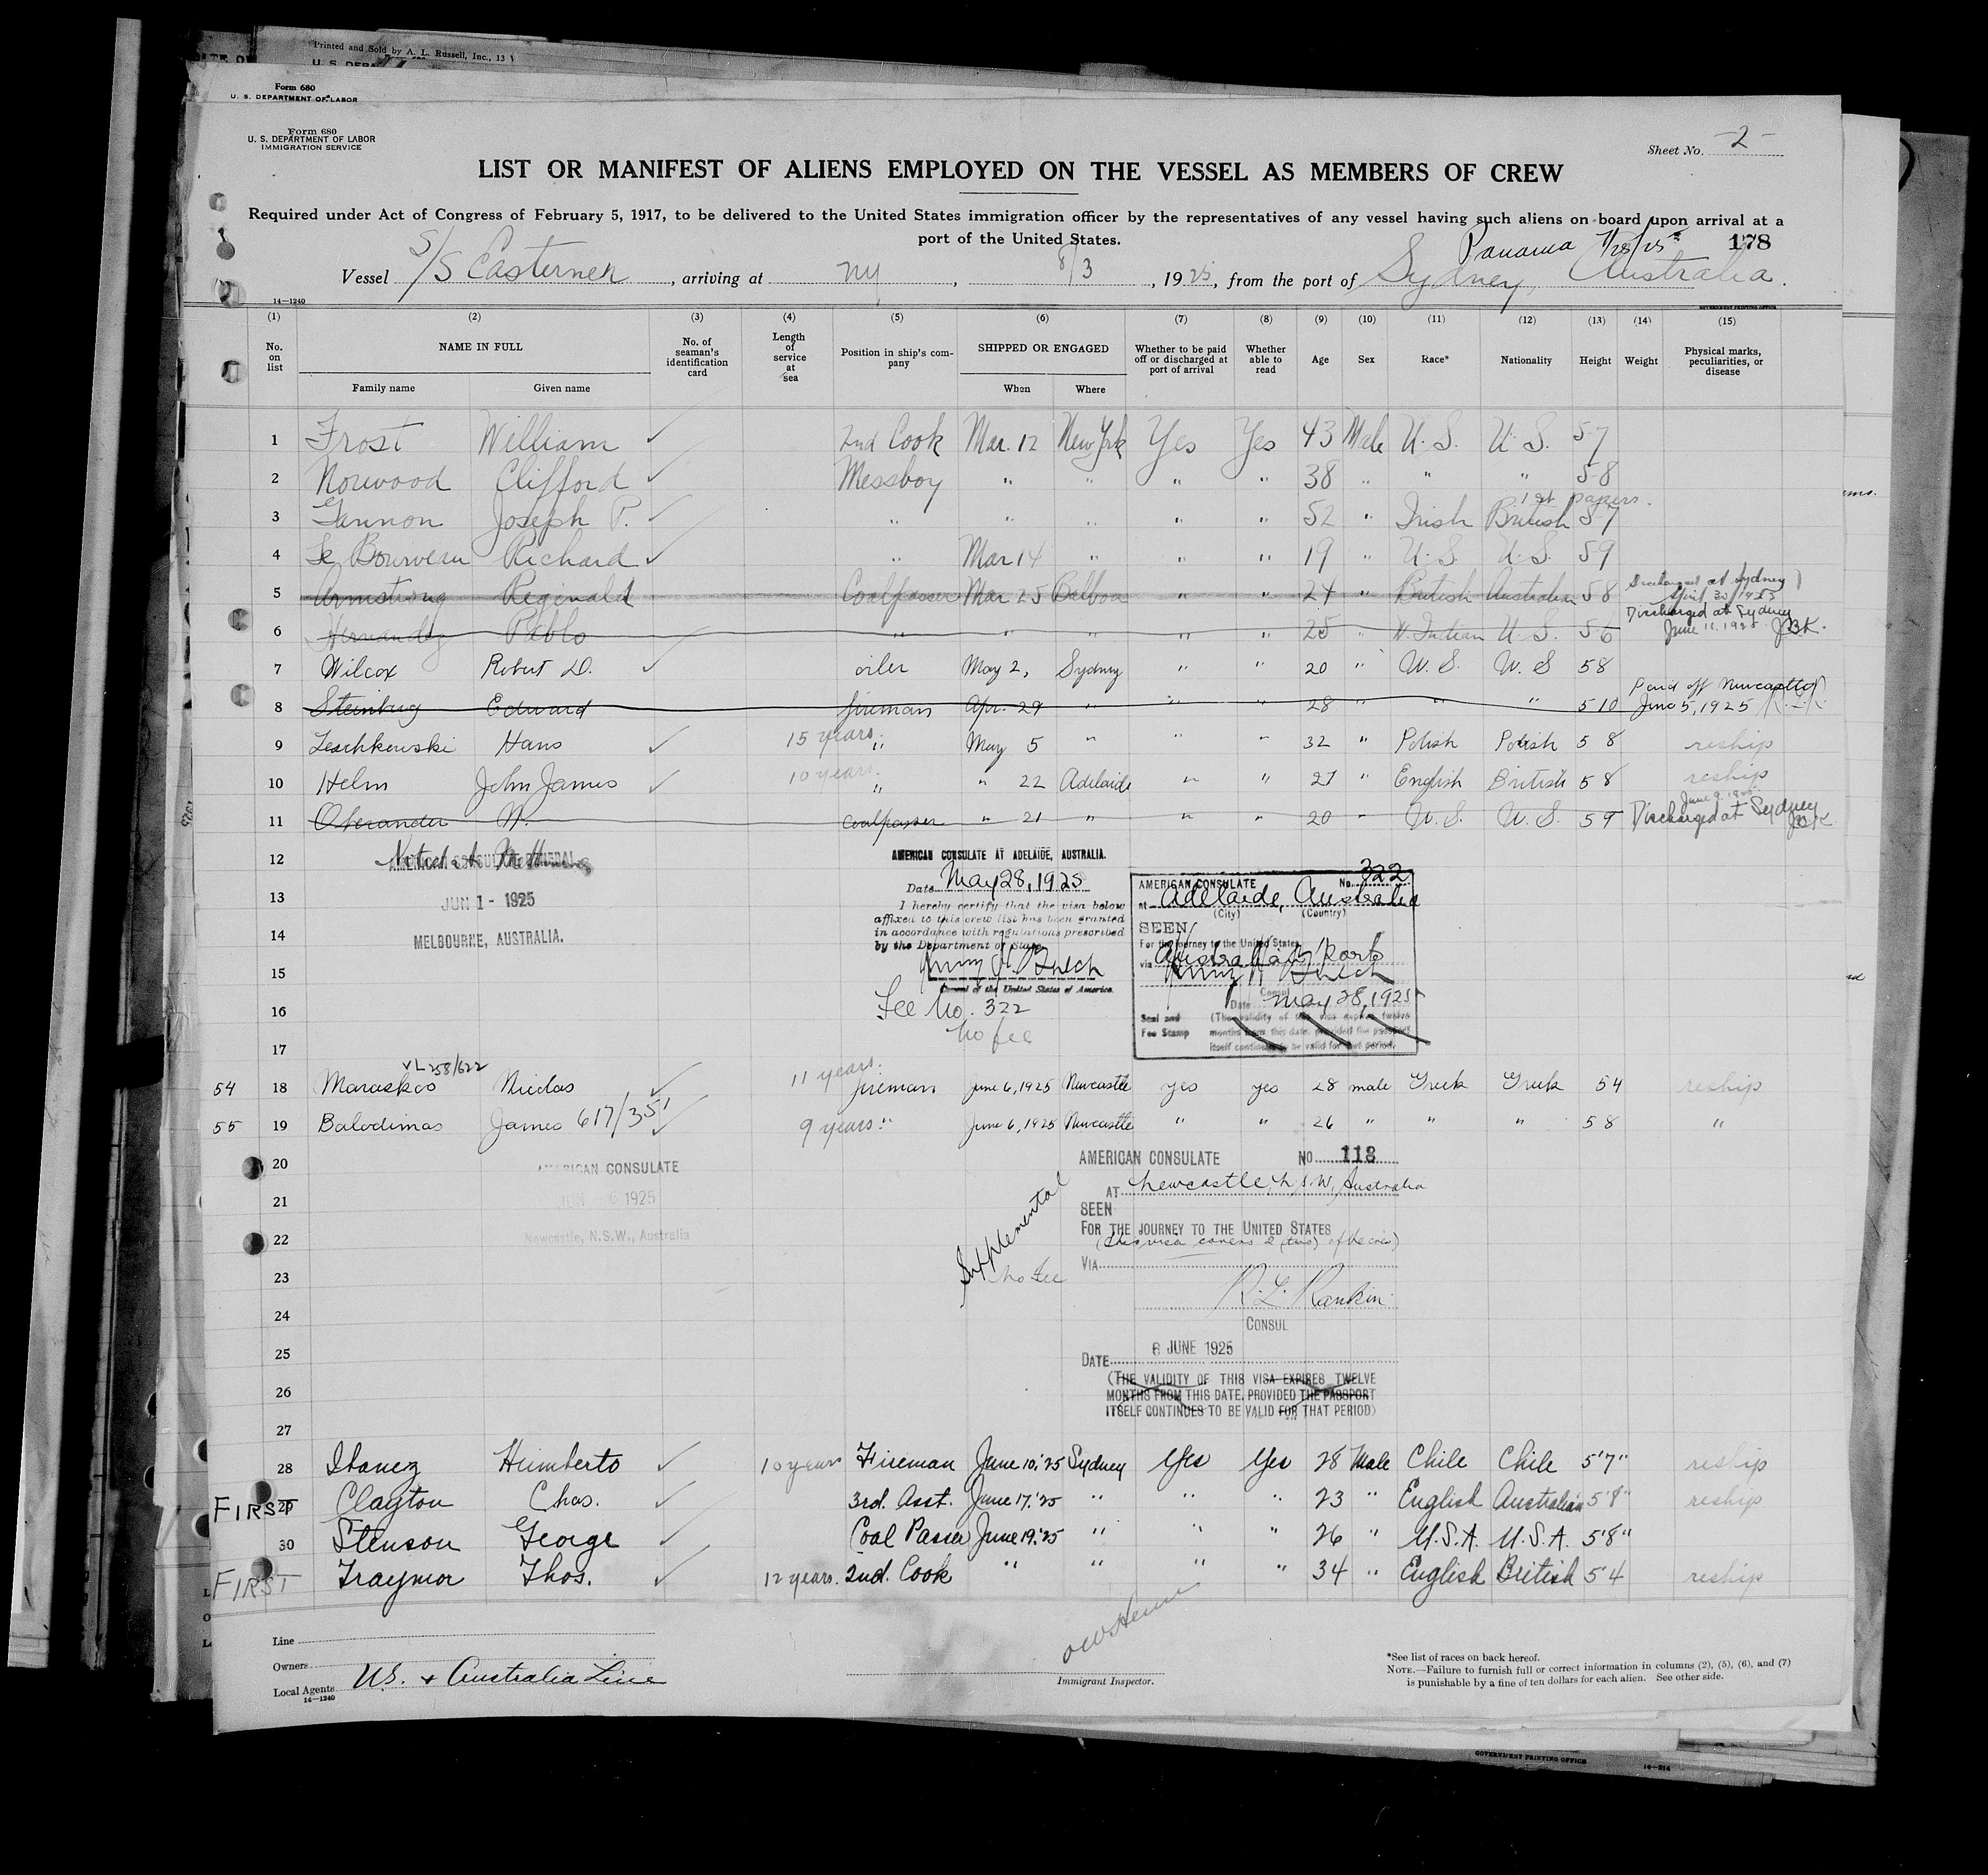 Printed and Sold by A. L. Russell, Inc., 13
U. S. DEPA
Form 680
U. S. DEPARTMENT OF LABOR
Form 680
U. S. DEPARTMENT OF LABOR
IMMIGRATION SERVICE
Sheet No. -2-
LIST OR MANIFEST OF ALIENS EMPLOYED ON THE VESSEL AS MEMBERS OF CREW
Required under Act of Congress of February 5, 1917, to be delivered to the United States immigration officer by the representatives of any vessel having such aliens on board upon arrival at a
port of the United States.
Panama 7/25/25 178
Vessel S/S Easterner, arriving at NY, 8/3, 1925, from the port of Sydney, Australia.
14—1240
(1) (2) (3) (4) (5) (6) (7) (8) (9) (10) (11) (12) (13) (14) (15)
No. on list NAME IN FULL Family name Given name No. of seaman's identification card Length of service at sea Position in ship's company SHIPPED OR ENGAGED When Where Whether to be paid off or discharged at port of arrival Whether able to read Age Sex Race* Nationality Height Weight Physical marks, peculiarities, or disease
1 Frost William ✓ 2nd Cook Mar. 12 New York Yes Yes 43 Male U. S. U. S. 5 7
2 Norwood Clifford ✓ Messboy " " " " 38 " " " 5 8
1st papers.
3 Gannon Joseph P. ✓ " " " " " 52 " Irish British 5 7
4 Le Bourveau Richard ✓ " Mar 14 " " " 19 " U. S. U. S. 5 9
5 Armstrong Reginald Coalpasser Mar 25 Balboa " " 24 " British Australian 5 8 Discharged at Sydney
6 Hernandez Pablo " " " " " 25 " W. Indian U. S. 5 6 Discharged at Sydney June 11. 1925 JBK.
7 Wilcox Robert D. ✓ oiler May 2, Sydney " " 20 " U. S. U. S 5 8
8 Steinburg Edward fireman Apr. 29 " " " 28 " " " 5 10 Paid off Newcastle June 5, 1925
9 Leschkowski Hans ✓ 15 years. " May 5 " " " 32 " Polish Polish 5 8 reship
10 Helm John James ✓ 10 years. " " 22 Adelaide " " 27 " English British 5 8 reship
11 Oherander N. coalpasser " 21 " " " 20 " U. S. U. S. 5 9 June 9 1925 Discharged at Sydney JBK
12
13
14
15
16
17
AMERICAN CONSULATE GENERAL
JUN 1 - 1925
MELBOURNE, AUSTRALIA.
AMERICAN CONSULATE AT ADELAIDE, AUSTRALIA.
Date May 28, 1925
I hereby certify that the visa below
affixed to this crew list has been granted
in accordance with regulations prescribed
by the Department of State
Consul of the United States of America.
Fee No. 322
No fee
AMERICAN CONSULATE No. 322
at Adelaide, Australia
(City) (Country)
SEEN
For the journey to the United States
via Australian Ports
Consul
Date May 28, 1925
Seal and Fee Stamp
(The validity of this visa expires twelve
months from this date, provided the passport
itself continues to be valid for that period.
VL 258/622
54 18 Maraskos Nicolas ✓ 11 years. fireman June 6, 1925 Newcastle yes yes 28 male Greek Greek 5 4 reship
55 19 Balodimas James 617/351 ✓ 9 years. " June 6, 1925 Newcastle " " 26 " " " 5 8 "
20
21
22
23
24
25
26
27
AMERICAN CONSULATE
JUN 6 1925
Newcastle, N.S.W., Australia
Supplemental
No fee
AMERICAN CONSULATE NO 118
AT Newcastle, N.S.W., Australia
SEEN
FOR THE JOURNEY TO THE UNITED STATES
(This visa covers 2 (two) of the crew)
VIA
R. L. Rankin
CONSUL
DATE 6 JUNE 1925
(THE VALIDITY OF THIS VISA EXPIRES TWELVE
MONTHS FROM THIS DATE, PROVIDED THE PASSPORT
ITSELF CONTINUES TO BE VALID FOR THAT PERIOD)
28 Ibanez Humberto ✓ 10 years Fireman June 10,'25 Sydney Yes Yes 28 Male Chile Chile 5'7" reship
FIRST 29 Clayton Chas. ✓ 3rd. Asst. June 17,'25 " " " 23 " English Australian 5'8" reship
30 Stenson George ✓ Coal Passer June 19,'25 " " " 26 " U.S.A. U.S.A. 5'8"
FIRST Traynor Thos. ✓ 12 years. 2nd. Cook " " " " 34 " English British 5'4 reship
Line
Owners
Local Agents U.S. & Australia Line
14—1240
Immigrant Inspector.
*See list of races on back hereof.
NOTE.—Failure to furnish full or correct information in columns (2), (5), (6), and (7)
is punishable by a fine of ten dollars for each alien. See other side.
GOVERNMENT PRINTING OFFICE